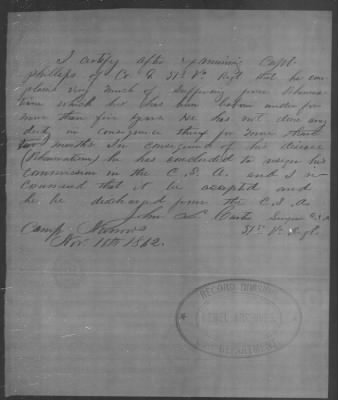 I certify after examining Capt.
Phillips of Co E 51st Va Regt that he com
plains very much of suffering from Rheuma
tism which he has been under for
more than five years. He has not done any
duty in consequence for more than
two months. In consequence of his disease
(Rheumatism) he has concluded to resign his
commission in the C. S. A. and I re
command that it be acepted and
he be discharged from the C. S. A.
John Surgeon
51st Va Regt.
Camp
Nov. 1862.
RECORD DIVISION
REBEL ARCHIVES
DEPARTMENT